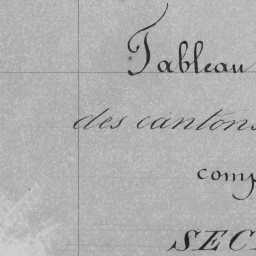 Tableau
des cantons
comp
SEC